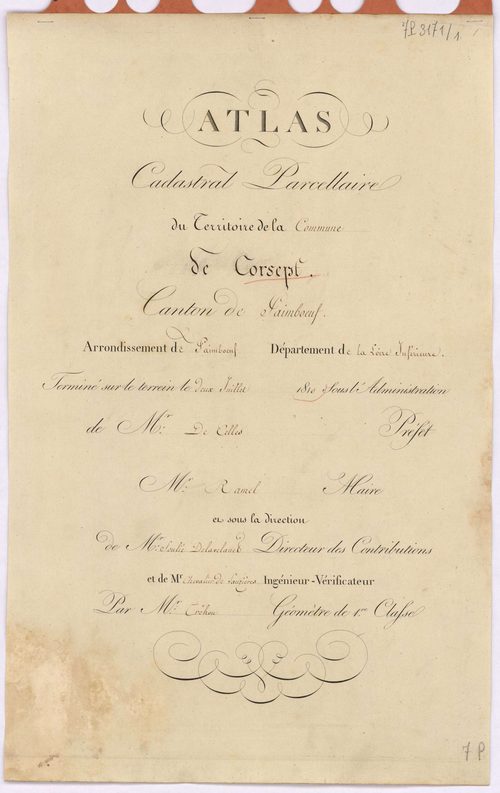 7P 3171/1
ATLAS
Cadastral Parcellaire
du Territoire de la Commune
de Corsept.
Canton de Paimboeuf.
Arrondissement de Paimboeuf Département de la Loire Inférieure.
Terminé sur le terrein le deux Juillet 1810 Sous l'Administration
de Mr. De Celles Préfet
Mr. Ramel Maire
et sous la direction
de Mr. Directeur des Contributions
et de Mr. Chevalier de Ingénieur-Vérificateur
Par Mr. Géomètre de 1re Classe
7P